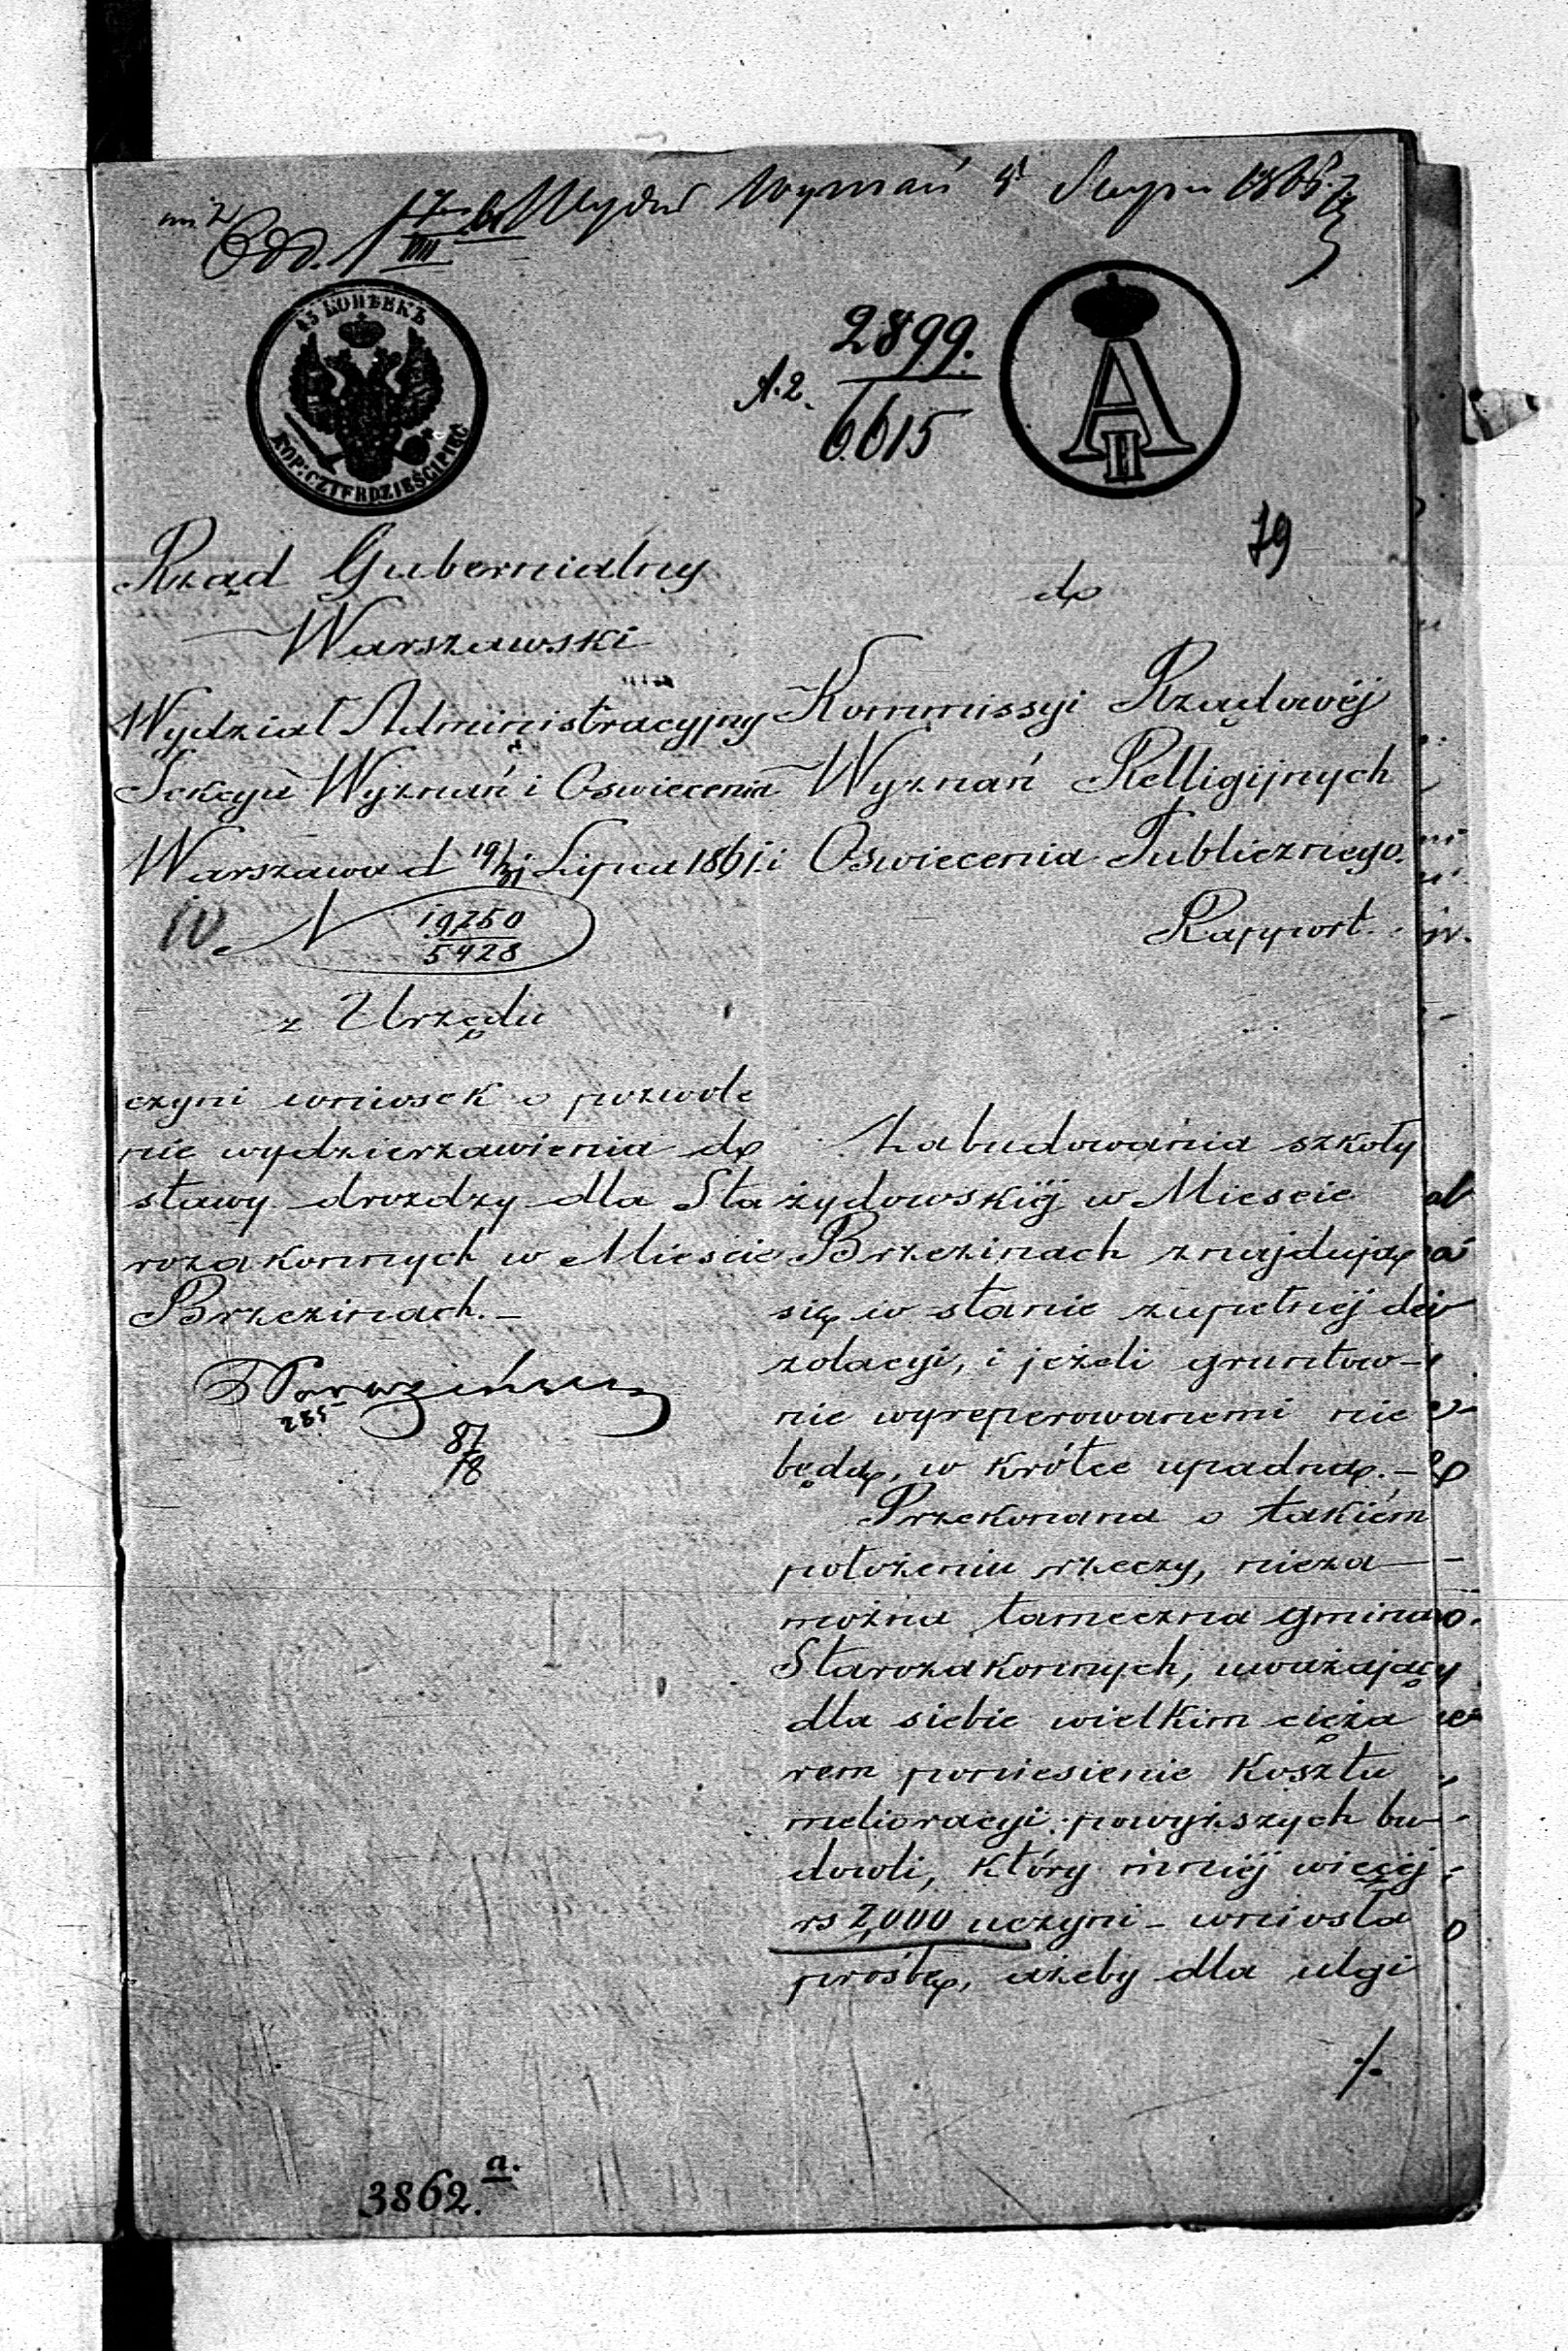 Wydział Wyznań 5 Sierpn 1861.
Odd.
45 КОПѢЕКЪ
KOP: CZTERDZIEŚCI PIĘĆ
2899.
6615
A II
79
Rząd Gubernialny
Warszawski
Wydział Administracyjny
Sekcyia Wyznań i Oswiecenia
Warszawa d 19/31 Lipca 1861.
N 19750
5428
z Urzędu
czyni wniosek o pozwole
nie wydzierzawienia do
stawy drozdzy dla Sta
rozakonnych w Miescie
Brzezinach. -
285
87
18
do
Kommissyi Rządowéj
Wyznań Relligijnych
i Oswiecenia Publicznego.
Rapport.
Zabudowania szkoły
żydowskiéj w Miescie
Brzezinach znajdują
się w stanie zupełnéj de
zolacyi, i jeżeli gruntow-
nie wyreperowanemi nie
będą, w krótce upadną. -
Przekonana o takiém
położeniu rzeczy, nieza-
można tameczna gmina
Starozakonnych, uważając
dla siebie wielkim cięża
rem poniesienie kosztu
melioracyi powyższych bu-
dowli, który mniéj więcéj
rs 2,000 uczyni - wniosła
prośbę, ażeby dla ulgi
./.
3862.a.